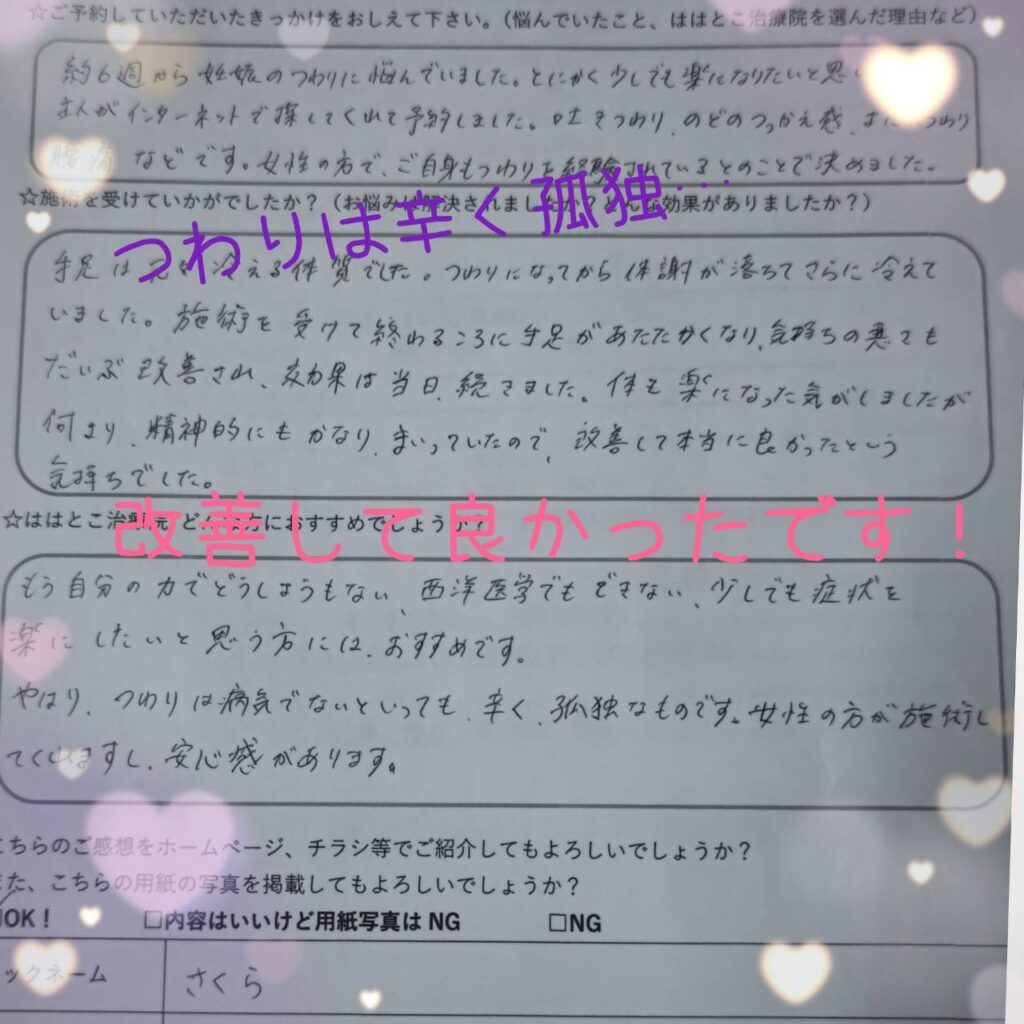 ☆ご予約していただいたきっかけをおしえて下さい。(悩んでいたこと、ははとこ治療院を選んだ理由など)
約6週から妊娠のつわりに悩んでいました。とにかく少しでも楽になりたいと思い
主人がインターネットで探してくれて予約しました。吐きつわり、のどのつっかえ感、よだれつわり
腹痛などです。女性の方で、ご自身もつわりを経験されているとのことで決めました。
☆施術を受けていかがでしたか?(お悩みは解決されましたか?どんな効果がありましたか?)
つわりは辛く孤独…
手足は元々冷える体質でした。つわりになってから体謝が落ちてさらに冷えて
いました。施術を受けて終わるころに手足があたたかくなり、気持ちの悪でも
だいぶ改善され、効果は当日、続きました。体も楽になった気がしましたが
何より、精神的にもかなり、まいっていたので、改善して本当に良かったという
気持ちでした。
☆ははとこ治療院 どんな方におすすめでしょうか?
改善して良かったです!
もう自分の力でどうしようもない、西洋医学でもできない、少しでも症状を
楽にしたいと思う方には、おすすめです。
やはり、つわりは病気でないといっても、辛く、孤独なものです。女性の方が施術し
てくれますし、安心感があります。
こちらのご感想をホームページ、チラシ等でご紹介してもよろしいでしょうか?
また、こちらの用紙の写真を掲載してもよろしいでしょうか?
OK! □内容はいいけど用紙写真はNG □NG
ックネーム さくら